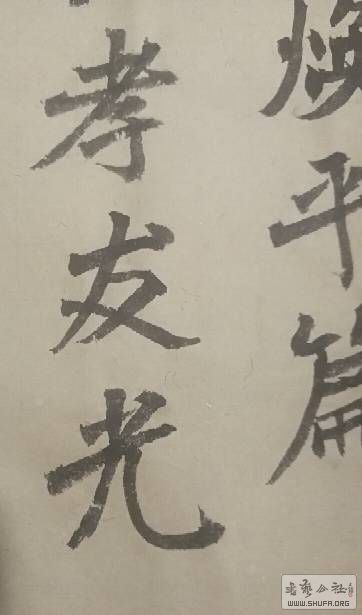 焕平篇
孝友光
书艺公社
WWW.SHUFA.ORG